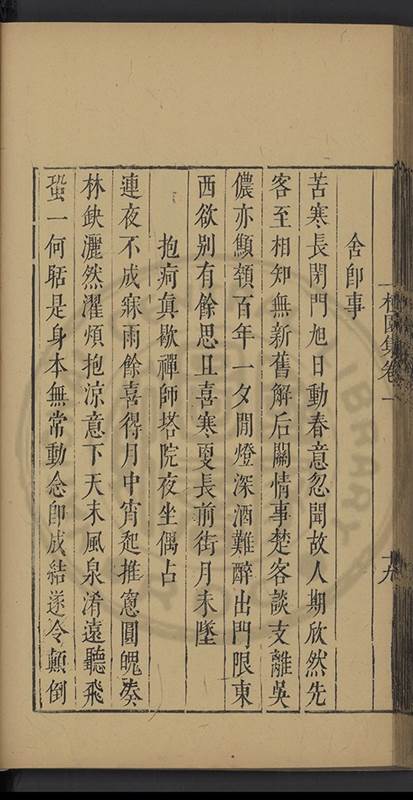 舍卽事
苦寒長閉門旭日動春意忽聞故人期欣然先
客至相知無新舊解后關情事楚客談支離吳
儂亦顦顇百年一夕閒燈深酒難醉出門限東
西欲别有餘思且喜寒夏長前街月未墜
抱疴眞歇禪師塔院夜坐偶占
連夜不成寐雨餘喜得月中宵起推窻圓魄奏
林缺灑然濯煩抱涼意下天末風泉淆遠聽飛
蛩一何聒是身本無常動念卽成結遂令顛倒
集卷一